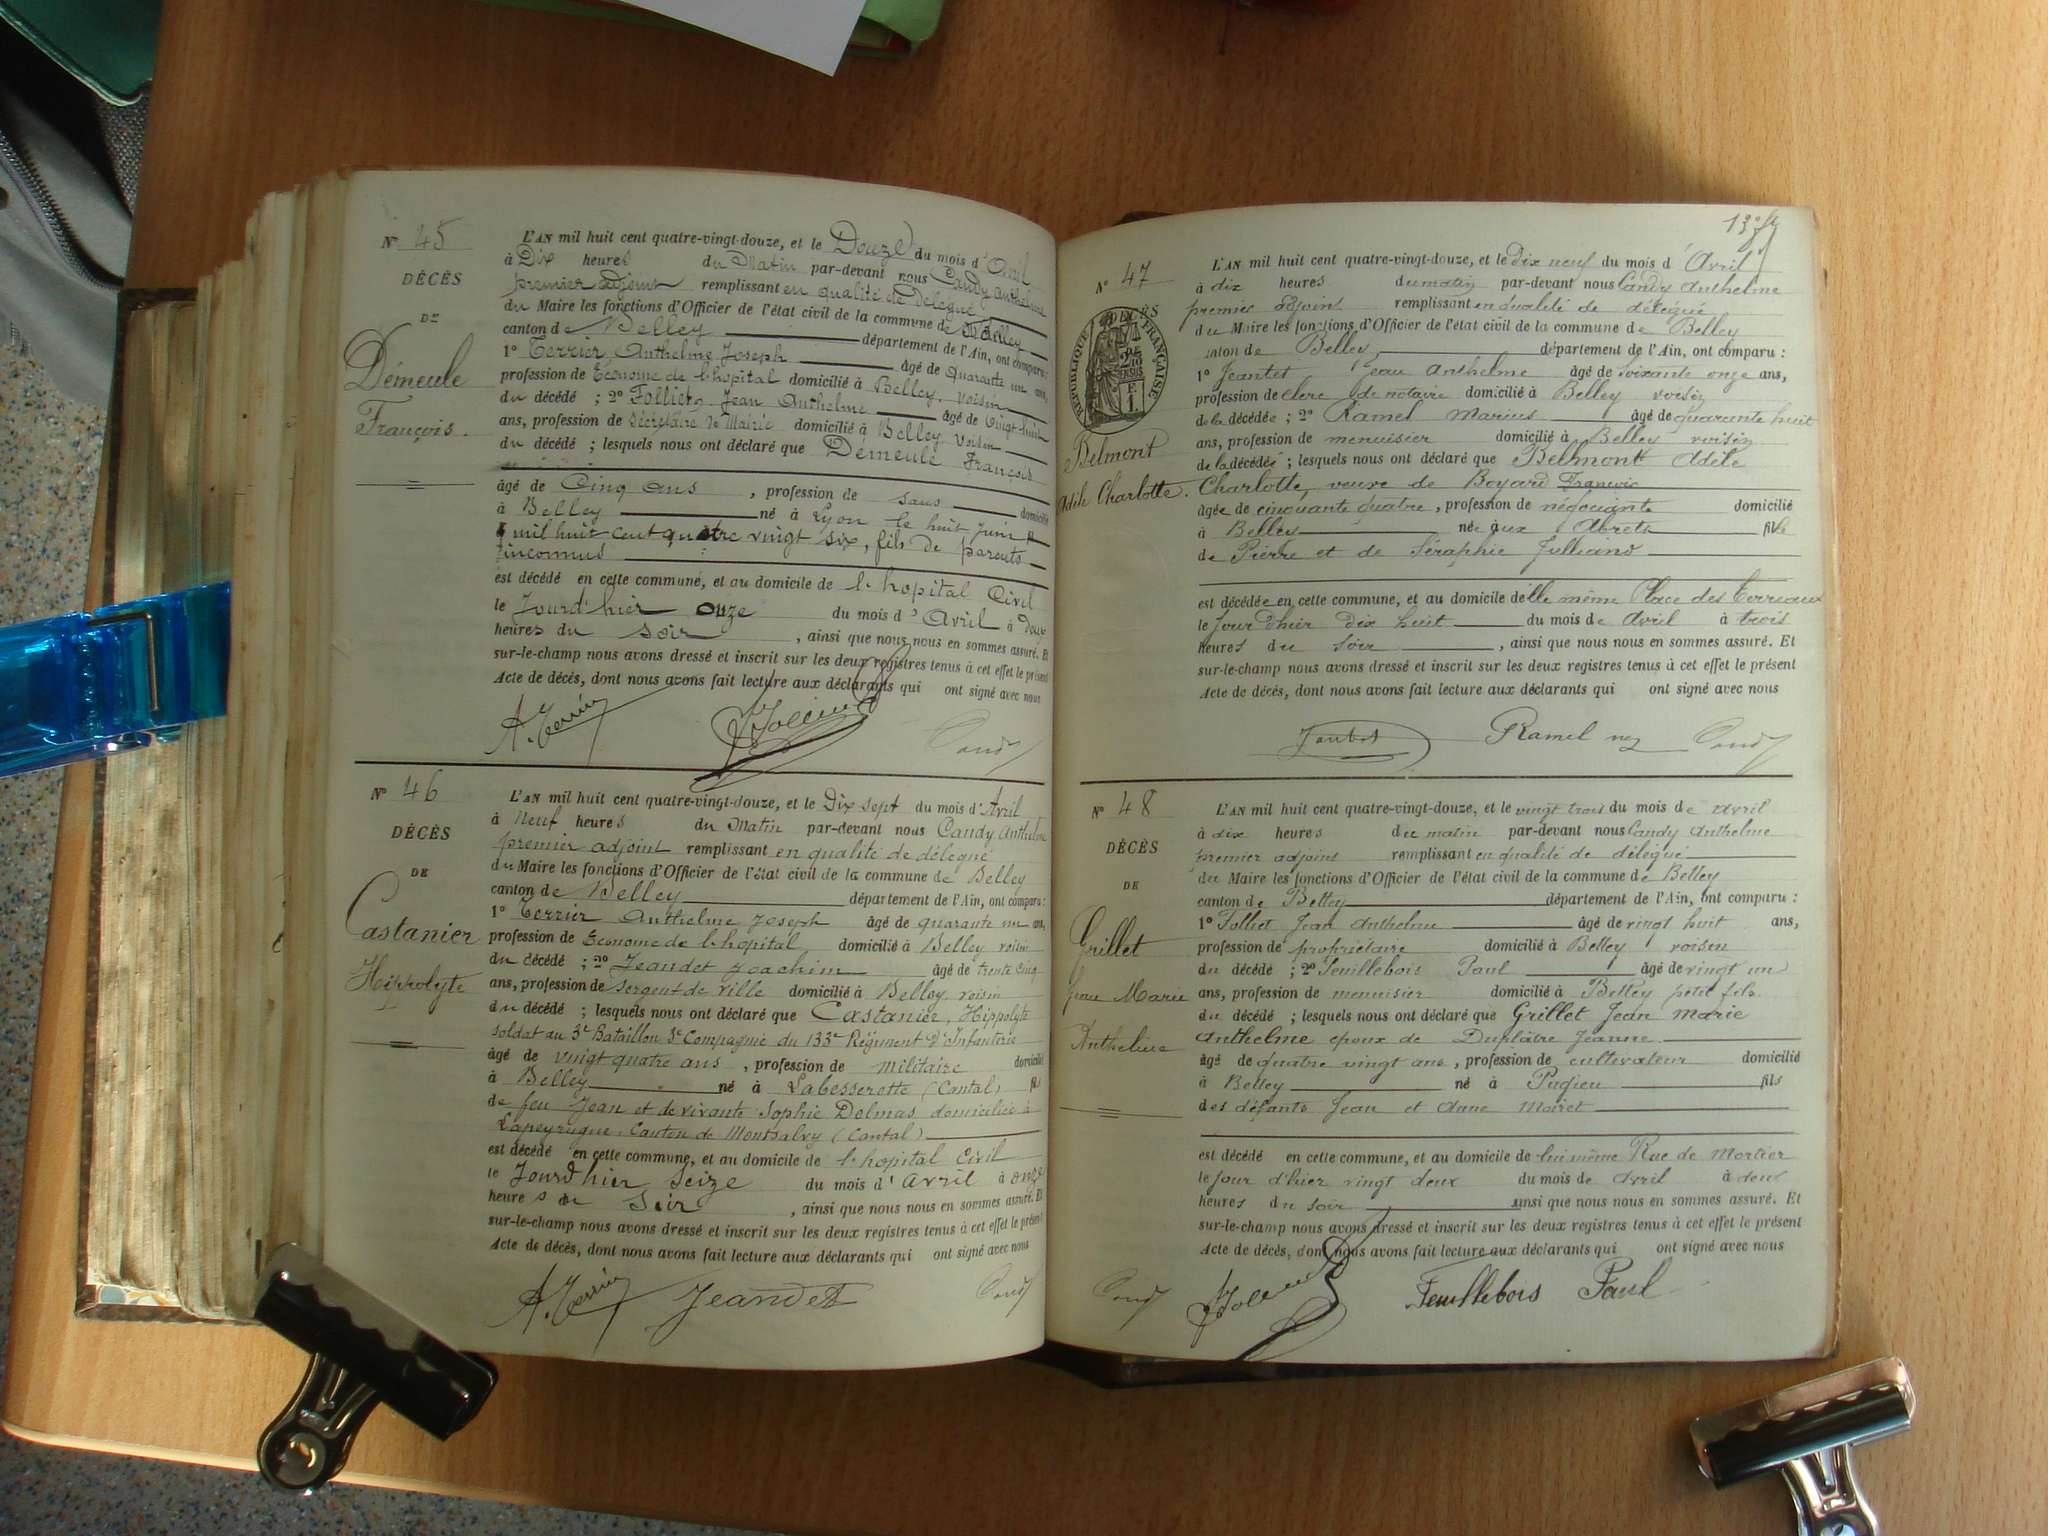 N° 45
DÉCÈS
DE
Démeule
François.
L'AN mil huit cent quatre-vingt-douze, et le Douze du mois d'Avril
à Dix heures du Matin par-devant nous Candy Anthelme
premier adjoint remplissant en qualité de Délégué
du Maire les fonctions d'Officier de l'état civil de la commune de Belley
canton de Belley département de l'Ain, ont comparu :
1° Terrier Anthelme Joseph âgé de quarante un ans,
profession de Econome de l'hopital domicilié à Belley. voisin
du décédé ; 2° Folliet Jean Anthelme âgé de vingt huit
ans, profession de Secrétaire de Mairie domicilié à Belley, voisin
du décédé ; lesquels nous ont déclaré que Démeule François
âgé de Cinq ans , profession de sans domicilié
à Belley né à Lyon le huit Juin
mil huit cent quatre vingt six, fils de parents
inconnus
est décédé en cette commune, et au domicile de l'hopital Civil
le Jourd'hier onze du mois d'Avril à deux
heures du soir , ainsi que nous nous en sommes assuré. Et
sur-le-champ nous avons dressé et inscrit sur les deux registres tenus à cet effet le présent
Acte de décès, dont nous avons fait lecture aux déclarants qui ont signé avec nous
A. Terrier Folliet Candy
N° 46
DÉCÈS
DE
Castanier
Hippolyte
L'AN mil huit cent quatre-vingt-douze, et le Dix sept du mois d'Avril
à Neuf heures du Matin par-devant nous Candy Anthelme
premier adjoint remplissant en qualité de délégué
du Maire les fonctions d'Officier de l'état civil de la commune de Belley
canton de Belley département de l'Ain, ont comparu :
1° Terrier Anthelme Joseph âgé de quarante un ans,
profession de Econome de l'hopital domicilié à Belley voisin
du décédé ; 2° Jeandet Joachim âgé de trente cinq
ans, profession de sergent de ville domicilié à Belley, voisin
du décédé ; lesquels nous ont déclaré que Castanier, Hippolyte
soldat au 3e Bataillon 3e Compagnie du 133e Régiment d'Infanterie
âgé de vingt quatre ans , profession de militaire domicilié
à Belley né à Labesserette (Cantal) fils
de feu Jean et de vivante Sophie Delmas domiciliée à
Lapeyrugue, Canton de Montsalvy (Cantal)
est décédé en cette commune, et au domicile de l'hopital Civil
le Jourd'hier seize du mois d'avril à onze
heures du Soir , ainsi que nous nous en sommes assuré. Et
sur-le-champ nous avons dressé et inscrit sur les deux registres tenus à cet effet le présent
Acte de décès, dont nous avons fait lecture aux déclarants qui ont signé avec nous
A. Terrier Jeandet Candy
N° 47
DÉCÈS
RÉPUBLIQUE FRANÇAISE
Belmont
Adèle Charlotte.
L'AN mil huit cent quatre-vingt-douze, et le dix neuf du mois d'Avril
à dix heures du matin par-devant nous Candy Anthelme
premier adjoint remplissant en qualité de délégué
du Maire les fonctions d'Officier de l'état civil de la commune de Belley
canton de Belley département de l'Ain, ont comparu :
1° Jeantet Jean Anthelme âgé de soixante onze ans,
profession de clerc de notaire domicilié à Belley voisin
de la décédée ; 2° Ramel Marius âgé de quarante huit
ans, profession de menuisier domicilié à Belley voisin
de la décédée ; lesquels nous ont déclaré que Belmont Adèle
Charlotte, veuve de Boyard François
âgée de cinquante quatre , profession de négociante domicilié
à Belley née aux Abrets fille
de Pierre et de Séraphie Julliand
est décédée en cette commune, et au domicile delle même Place des Terreaux
le Jour d'hier dix huit du mois de Avril à trois
heures du soir , ainsi que nous nous en sommes assuré. Et
sur-le-champ nous avons dressé et inscrit sur les deux registres tenus à cet effet le présent
Acte de décès, dont nous avons fait lecture aux déclarants qui ont signé avec nous
Ramel Candy
N° 48
DÉCÈS
DE
Grillet
Jean Marie
Anthelme
L'AN mil huit cent quatre-vingt-douze, et le vingt trois du mois de avril
à dix heures du matin par-devant nous Candy Anthelme
premier adjoint remplissant en qualité de délégué
du Maire les fonctions d'Officier de l'état civil de la commune de Belley
canton de Belley département de l'Ain, ont comparu :
1° Folliet Jean Anthelme âgé de vingt huit ans,
profession de propriétaire domicilié à Belley voisin
du décédé ; 2° Feuillebois Paul âgé de vingt un
ans, profession de menuisier domicilié à Belley petit fils
du décédé ; lesquels nous ont déclaré que Grillet Jean Marie
Anthelme epoux de Duplâtre Jeanne
âgé de quatre vingt ans , profession de cultivateur domicilié
à Belley né à Pugieu fils
des défunts Jean et Anne Moiret
est décédé en cette commune, et au domicile de lui même Rue de Mortier
le jour d'hier vingt deux du mois de avril à deux
heures du soir ainsi que nous nous en sommes assuré. Et
sur-le-champ nous avons dressé et inscrit sur les deux registres tenus à cet effet le présent
Acte de décès, dont nous avons fait lecture aux déclarants qui ont signé avec nous
Candy Folliet Feuillebois Paul